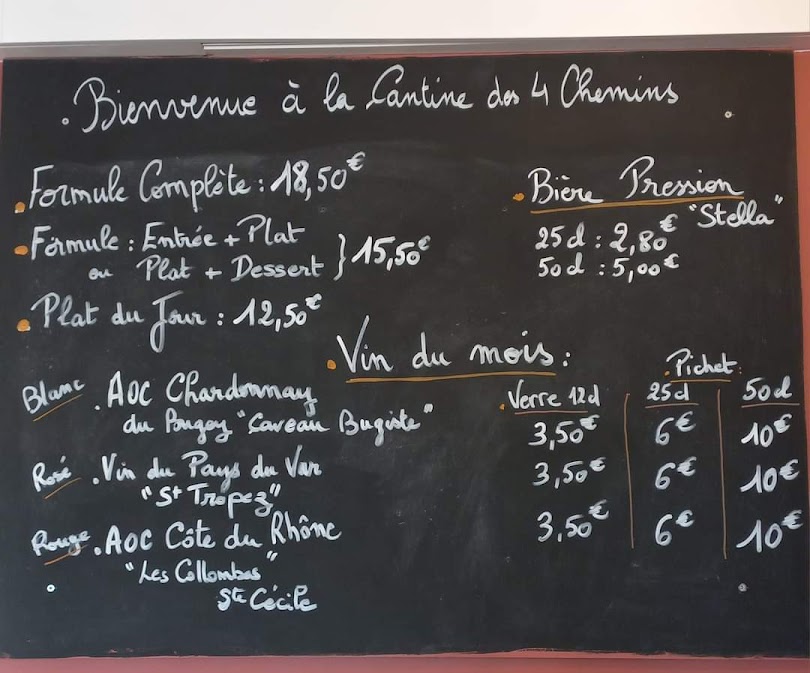 Bienvenue à la Cantine des 4 Chemins
Formule Complète : 18,50€
Formule : Entrée + Plat
ou Plat + Dessert } 15,50€
Plat du Jour : 12,50€
Bière Pression
"Stella"
25d : 2,80€
50d : 5,00€
Vin du mois :
Pichet
Verre 12d 25d 50d
Blanc . AOC Chardonnay
du Bugey "Caveau Bugiste" 3,50€ 6€ 10€
Rosé . Vin du Pays du Var 3,50€ 6€ 10€
"St Tropez"
Rouge . AOC Côte du Rhône 3,50€ 6€ 10€
"Les Collombes"
Ste Cécile